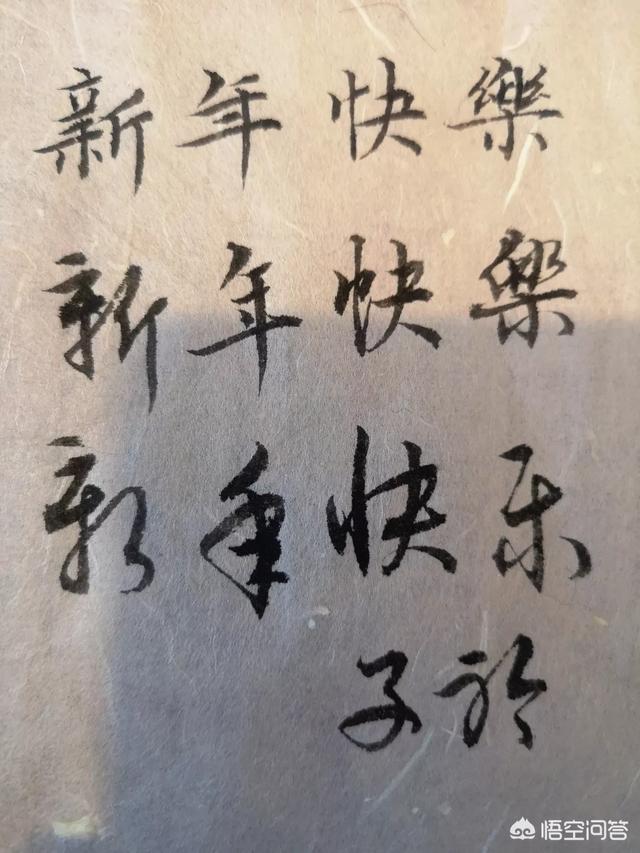 新年快樂
新年快樂
新年快乐
子於
悟空问答